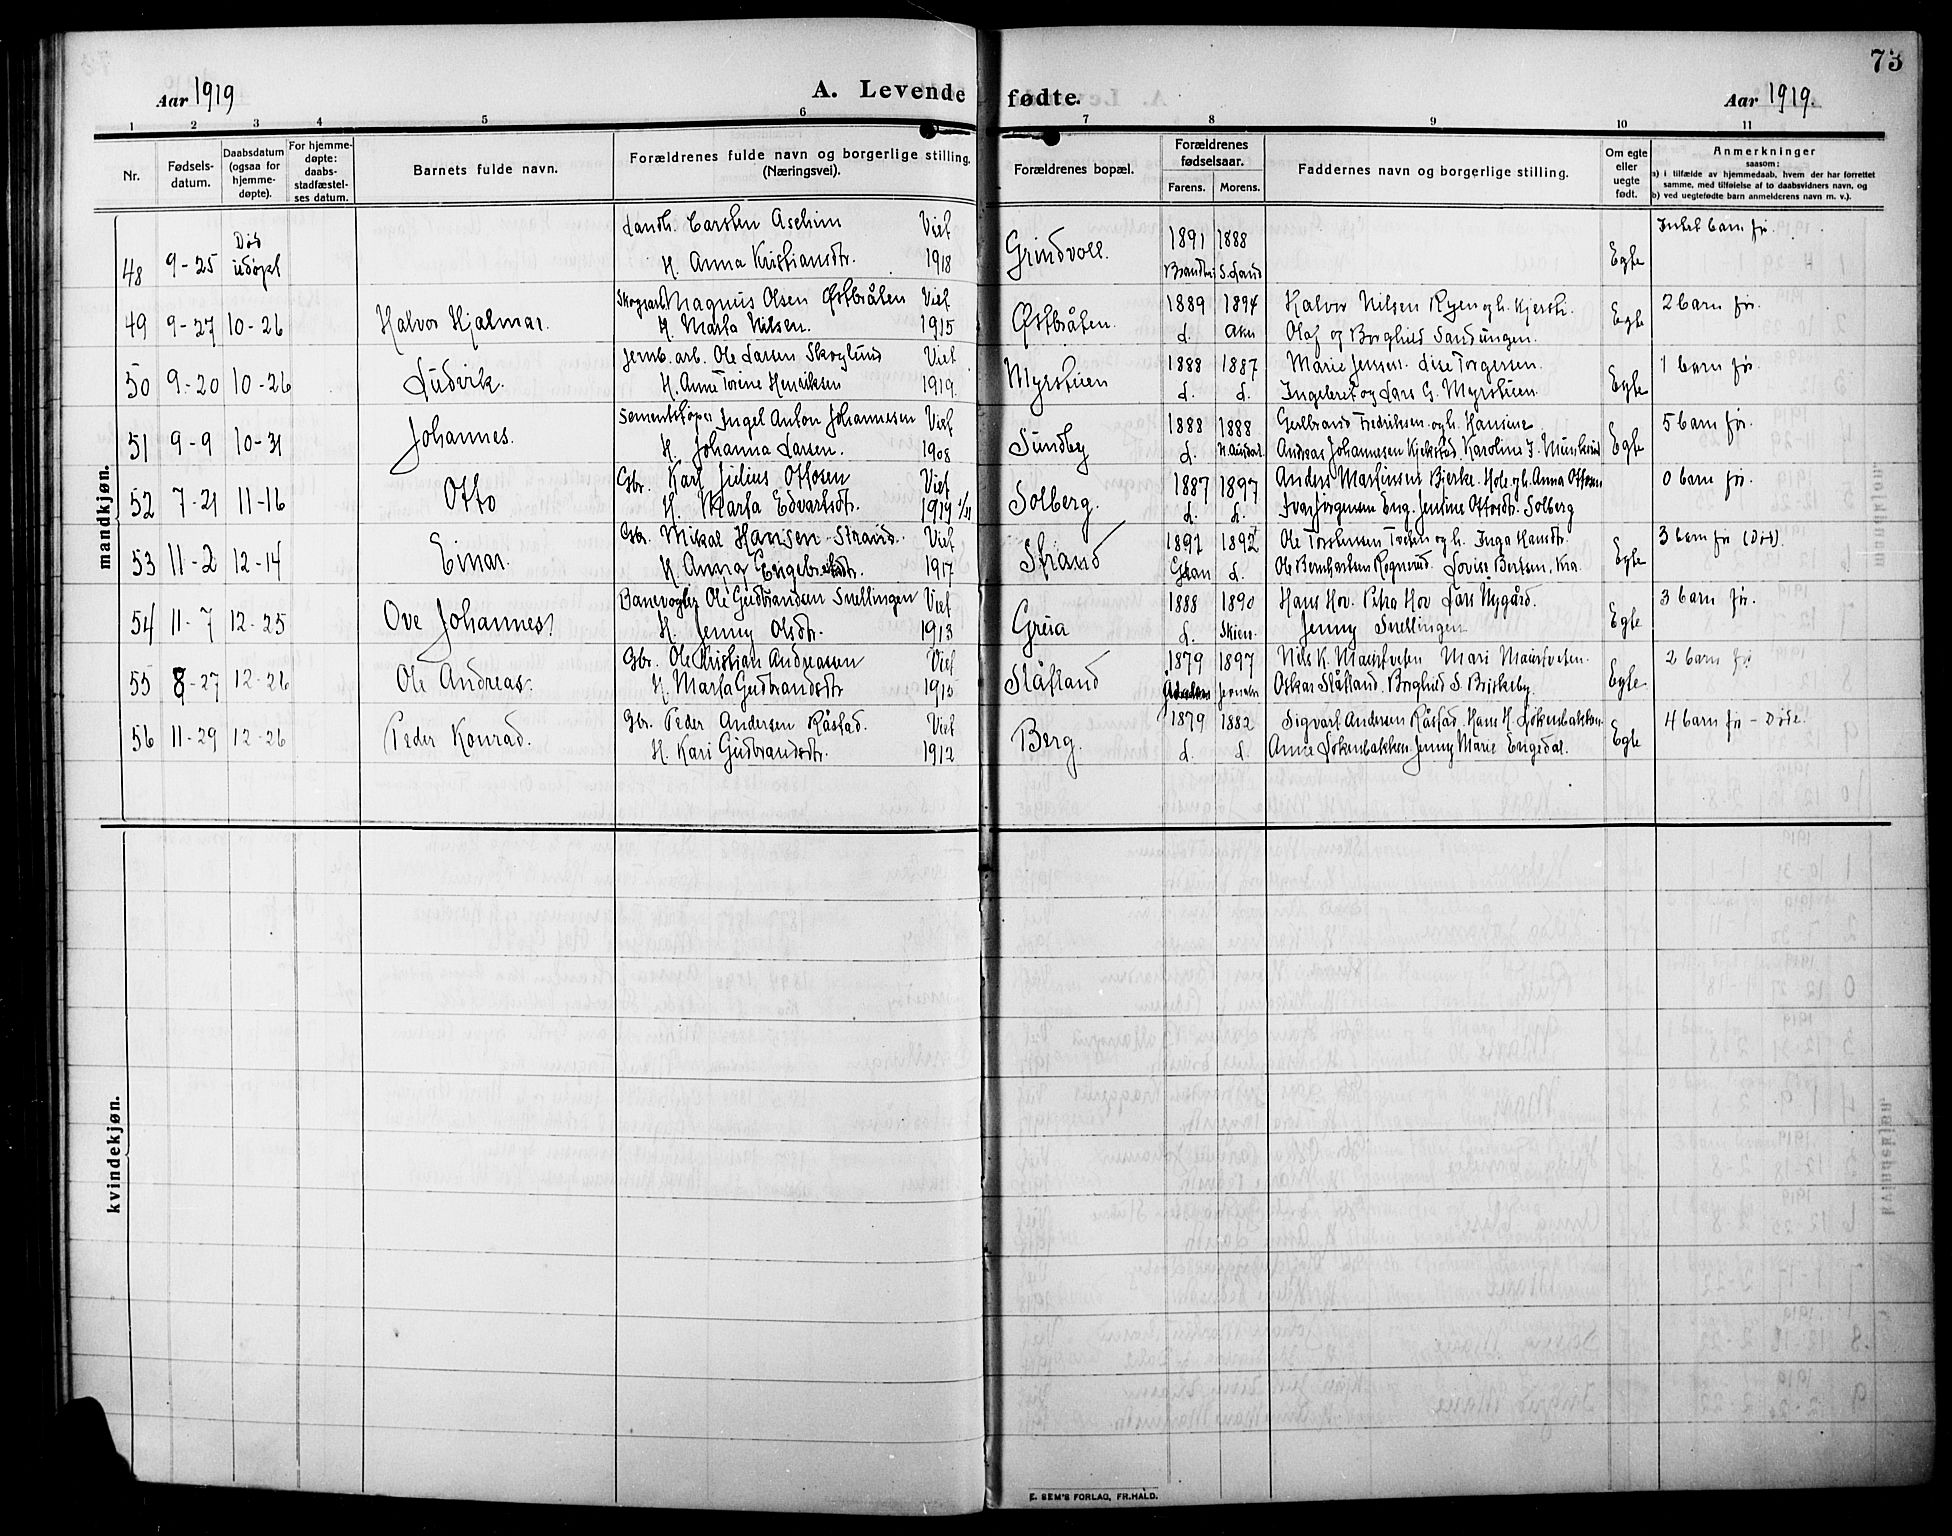 73
Aar 1919
A. Levende fødte.
Aar 1919.
1 2 3 4 5 6 7 8 9 10 11
Nr.
Fødsels-
datum.
Daabsdatum
(ogsaa for
hjemme-
døpte).
For hjemme-
døpte:
daabs-
stadfæstel-
ses datum.
Barnets fulde navn.
Forældrenes fulde navn og borgerlige stilling.
(Næringsvei).
Forældrenes bopæl.
Forældrenes
fødselsaar.
Farens. Morens.
Faddernes navn og borgerlige stilling.
Om egte
eller
uegte
født.
Anmerkninger
saasom:
a) i tilfælde av hjemmedaab, hvem der har forrettet
samme, med tilføielse af to daabsvidners navn, og
b) ved uegtefødte barn anmelderens navn m. v.).
mandkjøn.
Landh. Carsten Aschim Viet 1891 1888 Intet barn før.
48 9-25 Død udøpt H. Anna Kristiansdtr. 1918 Grindvoll. Brandbu S. Land Egte
Magnus Olsen Østbråten Viet 1889 1894 Halvor Nilsen Ryen og h. Kjersti. 2 barn før.
49 9-27 10-26 Halvor Hjalmar. H. Marta Nilsen. 1915 Østbråten. L. Aker Olaf og Borghild Sandungen. Egte
Jernb. arb. Ole Larsen Skoglund Viet 1888 1887 Marie Jensen. Lise Torgersen. 1 barn før.
50 9-20 10-26 Ludvik. H. Anne Torine Henriksen 1919. Myrstuen L. L. Ingebret og Lars G. Myrstuen. Egte
Sementstøper Ingel Anton Johannessen Viet 1888 1888 Gulbrand Fredriksen og h. Hansine 5 barn før.
51 9-9 10-31 Johannes. H. Johanna Larsen. 1908 Sundby L. Andreas Johannesen Kjekstad Karoline J. Egte
Gbr. Karl Julius Ottosen Viet 1887 1897 Anders Martinsens Bjerke. Hole og h. Anna Ottosen 0 barn før.
52 7-21 11-16 Otto H. Marta Edvartsdtr. 1919 Solberg. L. L. Ivar Jørgensen Eng. Jentine Ottosdtr. Solberg
Gbr. Mikal Hansen Strand. Viet 1892 Ole Torstensen og h. Inga Hansdtr. 3 barn før (Død).
53 11-2 12-14 Einar. H. Anna Engebretsdtr. 1917 Strand Gran L. Ole Bernhartsen Rognerud. Lovise Bertsen, Kra. Egte
Banevogter Ole Gudbrandsen Snellingen Viet 1888 1890 Hans Hov. Petra Hov Lars Nygård. 3 barn før.
54 11-7 12-25 Ove Johannes. H. Jenny Olsdtr. 1913 Greia L. Skien. Jenny Snellingen Egte
Gbr. Ole Kristian Andreasen Viet 1879 1897 Nils K. Mari 2 barn før
55 8-27 12-26 Ole Andreas. H. Marta Gudbrandsdtr 1915 Slåtland Jevnaker Oskar Slåtland. Borghild S Briskeby. Egte
Gbr. Peder Andersen Råstad. Viet 1879 1882 Sigvart Andersen Råstad. Hans H. Løkenbakken. 4 barn før - Døde.
56 11-29 12-26 Peder Konrad. H. Kari Gudbrandsdtr. 1912 Berg. L. L. Anne Løkenbakken. Jenny Marie Engedal. Egte
kvindekjøn.
E. SEM'S FORLAG, FR.HALD.